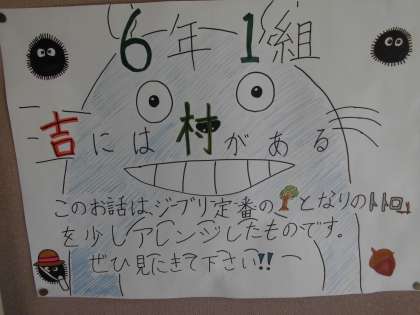 6年1組
吉には村がある
このお話は、ジブリ定番のとなりのトトロ
を少しアレンジしたものです。
ぜひ見にきて下さい!!